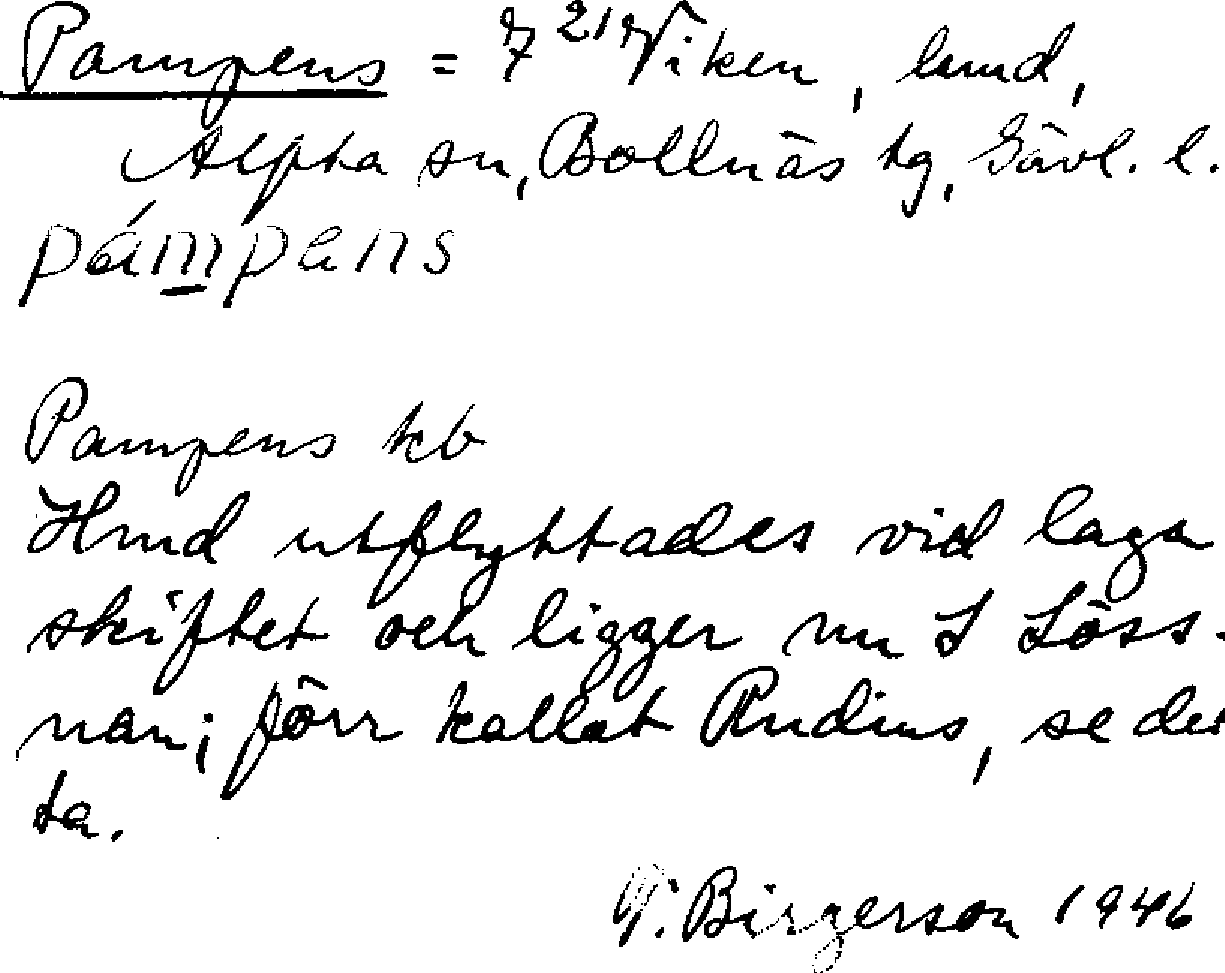 Pampens = 7²¹ Viken, hmd,
Alfta sn, Bollnäs tg, Gävl. l.
pámpens
Pampens kb
Hmd utflyttades vid laga
skiftet och ligger nu I Löss-
nan; förr kallat Rudins, se det
ta.
V. Birgerson 1946